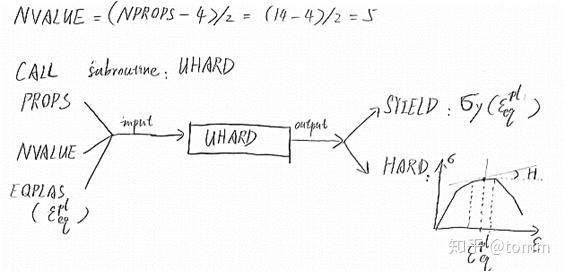 NVALUE = (NPROPS - 4)/2 = (14 - 4)/2 = 5
CALL subroutine: UHARD
PROPS
NVALUE
EQPLAS
(ε^{pl}_{eq})
input
UHARD
output
SYIELD: σy(ε^{pl}_{eq})
HARD:
σ
H
ε
ε^{pl}_{eq}
知乎 @tomm